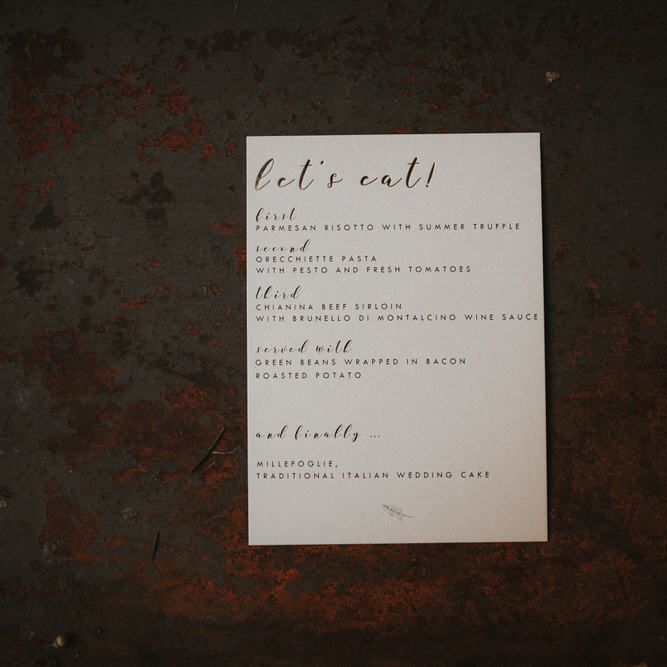 let's eat!
first
PARMESAN RISOTTO WITH SUMMER TRUFFLE
second
ORECCHIETTE PASTA
WITH PESTO AND FRESH TOMATOES
third
CHIANINA BEEF SIRLOIN
WITH BRUNELLO DI MONTALCINO WINE SAUCE
served with
GREEN BEANS WRAPPED IN BACON
ROASTED POTATO
and finally ...
MILLEFOGLIE,
TRADITIONAL ITALIAN WEDDING CAKE